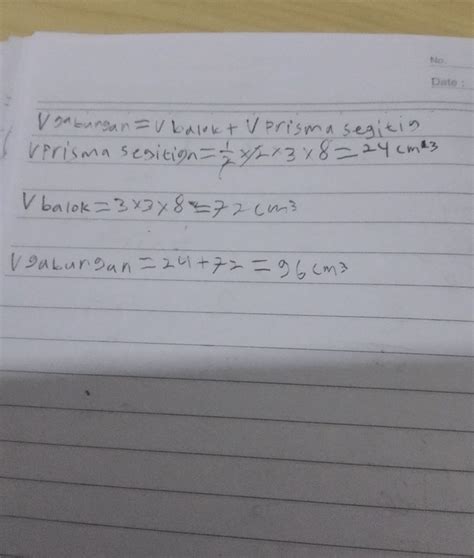 No.
Date :
V gabungan = V balok + V prisma segitig
V Prisma segitiga = 1/2 x 2 x 3 x 8 = 24 cm³
V balok = 3 x 3 x 8 = 72 cm³
V gabungan = 24 + 72 = 96 cm³